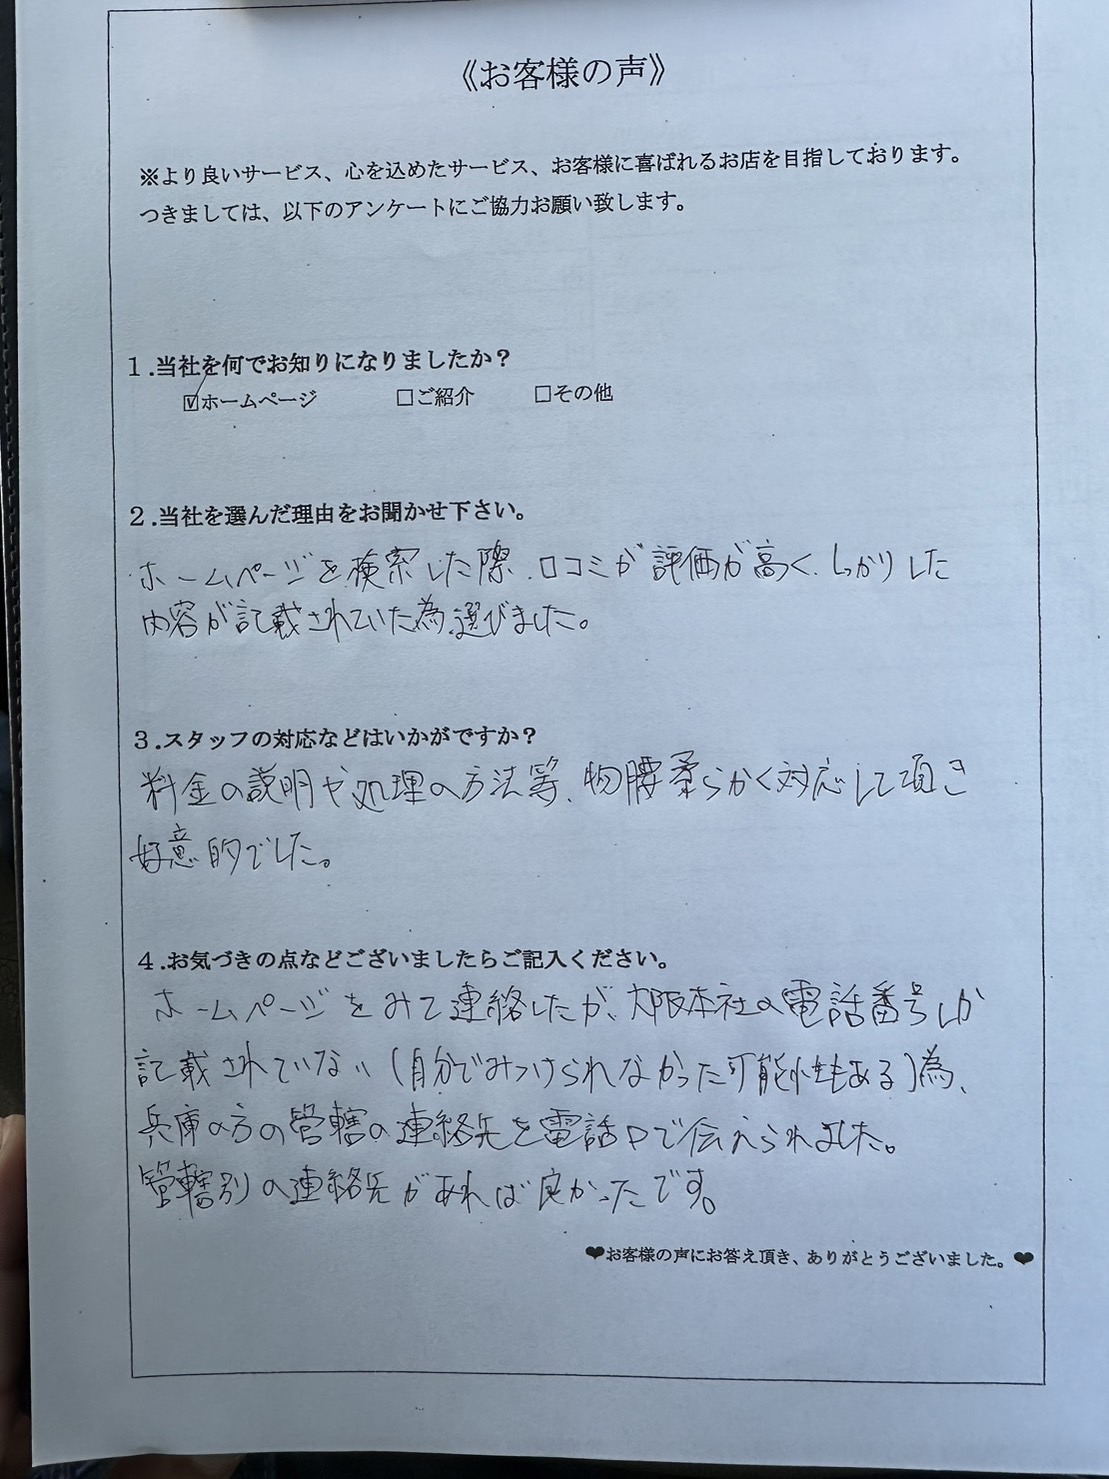 《お客様の声》
※より良いサービス、心を込めたサービス、お客様に喜ばれるお店を目指しております。
つきましては、以下のアンケートにご協力お願い致します。
1.当社を何でお知りになりましたか？
☑ホームページ　□ご紹介　□その他
2.当社を選んだ理由をお聞かせ下さい。
ホームページを検索した際、口コミが評価が高く、しっかりした
内容が記載されていた為、選びました。
3.スタッフの対応などはいかがですか？
料金の説明や処理の方法等、物腰柔らかく対応して頂き
好意的でした。
4.お気づきの点などございましたらご記入ください。
ホームページをみて連絡したが、大阪本社の電話番号しか
記載されていない(自分でみつけられなかった可能性もある)為、
兵庫の方の管轄の連絡先を電話口で伝えられました。
管轄別の連絡先があれば良かったです。
❤お客様の声にお答え頂き、ありがとうございました。❤